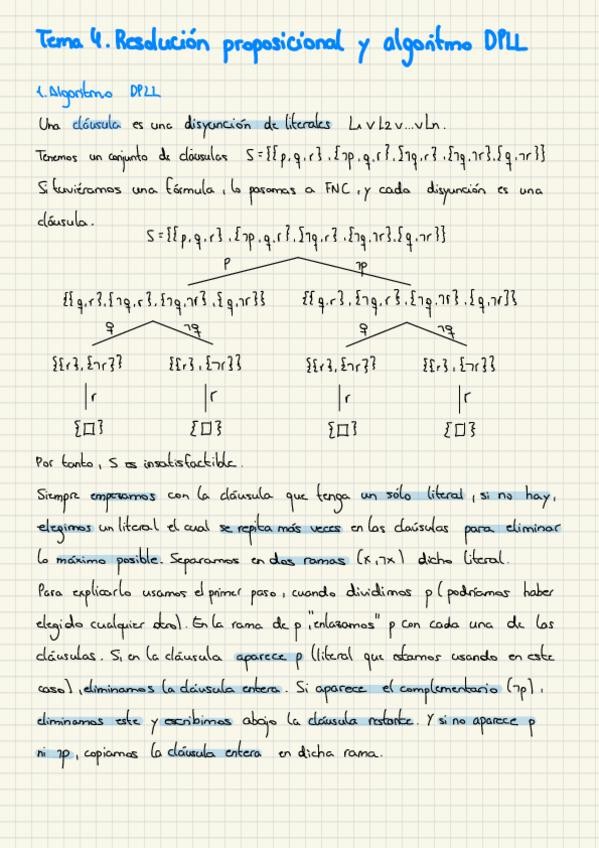 Tema 4. Resolución proposicional y algoritmo DPLL
1. Algoritmo DPLL
Una cláusula es una disyunción de literales L1 v L2 v...v Ln.
Tenemos un conjunto de cláusulas S={{p,q,r},{¬p,q,r},{¬q,r},{¬q,¬r},{q,¬r}}
Si tuviéramos una fórmula, la pasamos a FNC, y cada disyunción es una
cláusula.
S={{p,q,r},{¬p,q,r},{¬q,r},{¬q,¬r},{q,¬r}}
p ¬p
{{q,r},{¬q,r},{¬q,¬r},{q,¬r}} {{q,r},{¬q,r},{¬q,¬r},{q,¬r}}
q ¬q q ¬q
{{r},{¬r}} {{r},{¬r}} {{r},{¬r}} {{r},{¬r}}
r r r r
{□} {□} {□} {□}
Por tanto, S es insatisfactible.
Siempre empezamos con la cláusula que tenga un sólo literal, si no hay,
elegimos un literal el cual se repita más veces en las claúsulas para eliminar
lo máximo posible. Separamos en dos ramas (x,¬x) dicho literal.
Para explicarlo usamos el primer paso, cuando dividimos p (podríamos haber
elegido cualquier otro). En la rama de p, "enlazamos" p con cada una de las
cláusulas. Si en la cláusula aparece p (literal que estamos usando en este
caso), eliminamos la cláusula entera. Si aparece el complementario (¬p),
eliminamos este y escribimos abajo la cláusula restante. Y si no aparece p
ni ¬p, copiamos la cláusula entera en dicha rama.